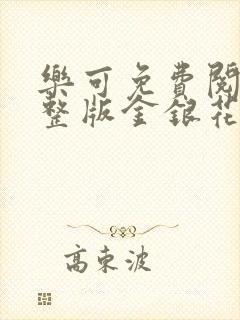 樂可免費閱
整版金銀花
高東波